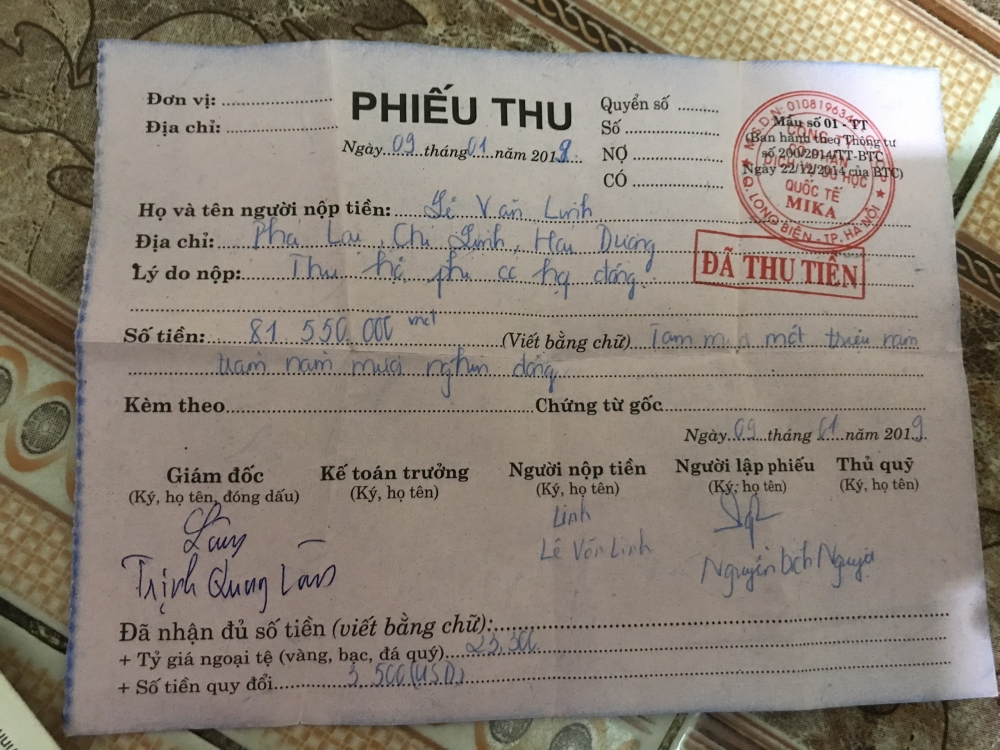 Đơn vị:
Địa chỉ:
PHIẾU THU
Ngày 09 tháng 01 năm 2019
Quyển số
Số
NỢ
CÓ
Mẫu số 01 - PT
(Ban hành theo Thông tư
số 200/2014/TT-BTC
Ngày 22/12/2014 của BTC)
M.S.D.N: 01081963
CÔNG TY
CỔ PHẦN
DỊCH VỤ DU HỌC
QUỐC TẾ
MIKA
Q. LONG BIÊN - TP. HÀ NỘI
Họ và tên người nộp tiền: Lê Văn Linh
Địa chỉ: Phả Lại, Chí Linh, Hải Dương
ĐÃ THU TIỀN
Lý do nộp: Thu hộ phí cc hợp đồng
Số tiền: 81 550 000 vnđ (Viết bằng chữ) Tám mươi mốt triệu năm
trăm năm mươi nghìn đồng
Kèm theo Chứng từ gốc
Ngày 09 tháng 01 năm 2019
Giám đốc Kế toán trưởng Người nộp tiền Người lập phiếu Thủ quỹ
(Ký, họ tên, đóng dấu) (Ký, họ tên) (Ký, họ tên) (Ký, họ tên) (Ký, họ tên)
Linh
Lê Văn Linh
Trịnh Quang Lâm
Nguyễn Bích
Đã nhận đủ số tiền (viết bằng chữ):
+ Tỷ giá ngoại tệ (vàng, bạc, đá quý) 23.300
+ Số tiền quy đổi 3 500 (USD)